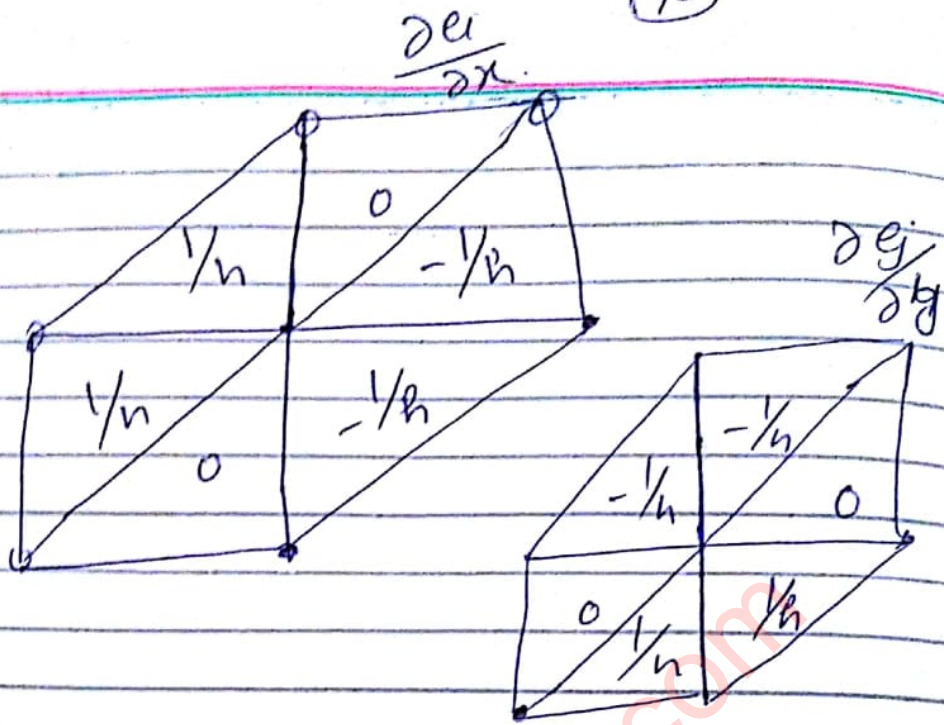 ∂ei/∂x
0
1/h -1/h
1/h -1/h
0
∂ej/∂y
-1/h
-1/h 0
0 1/h
1/h
com